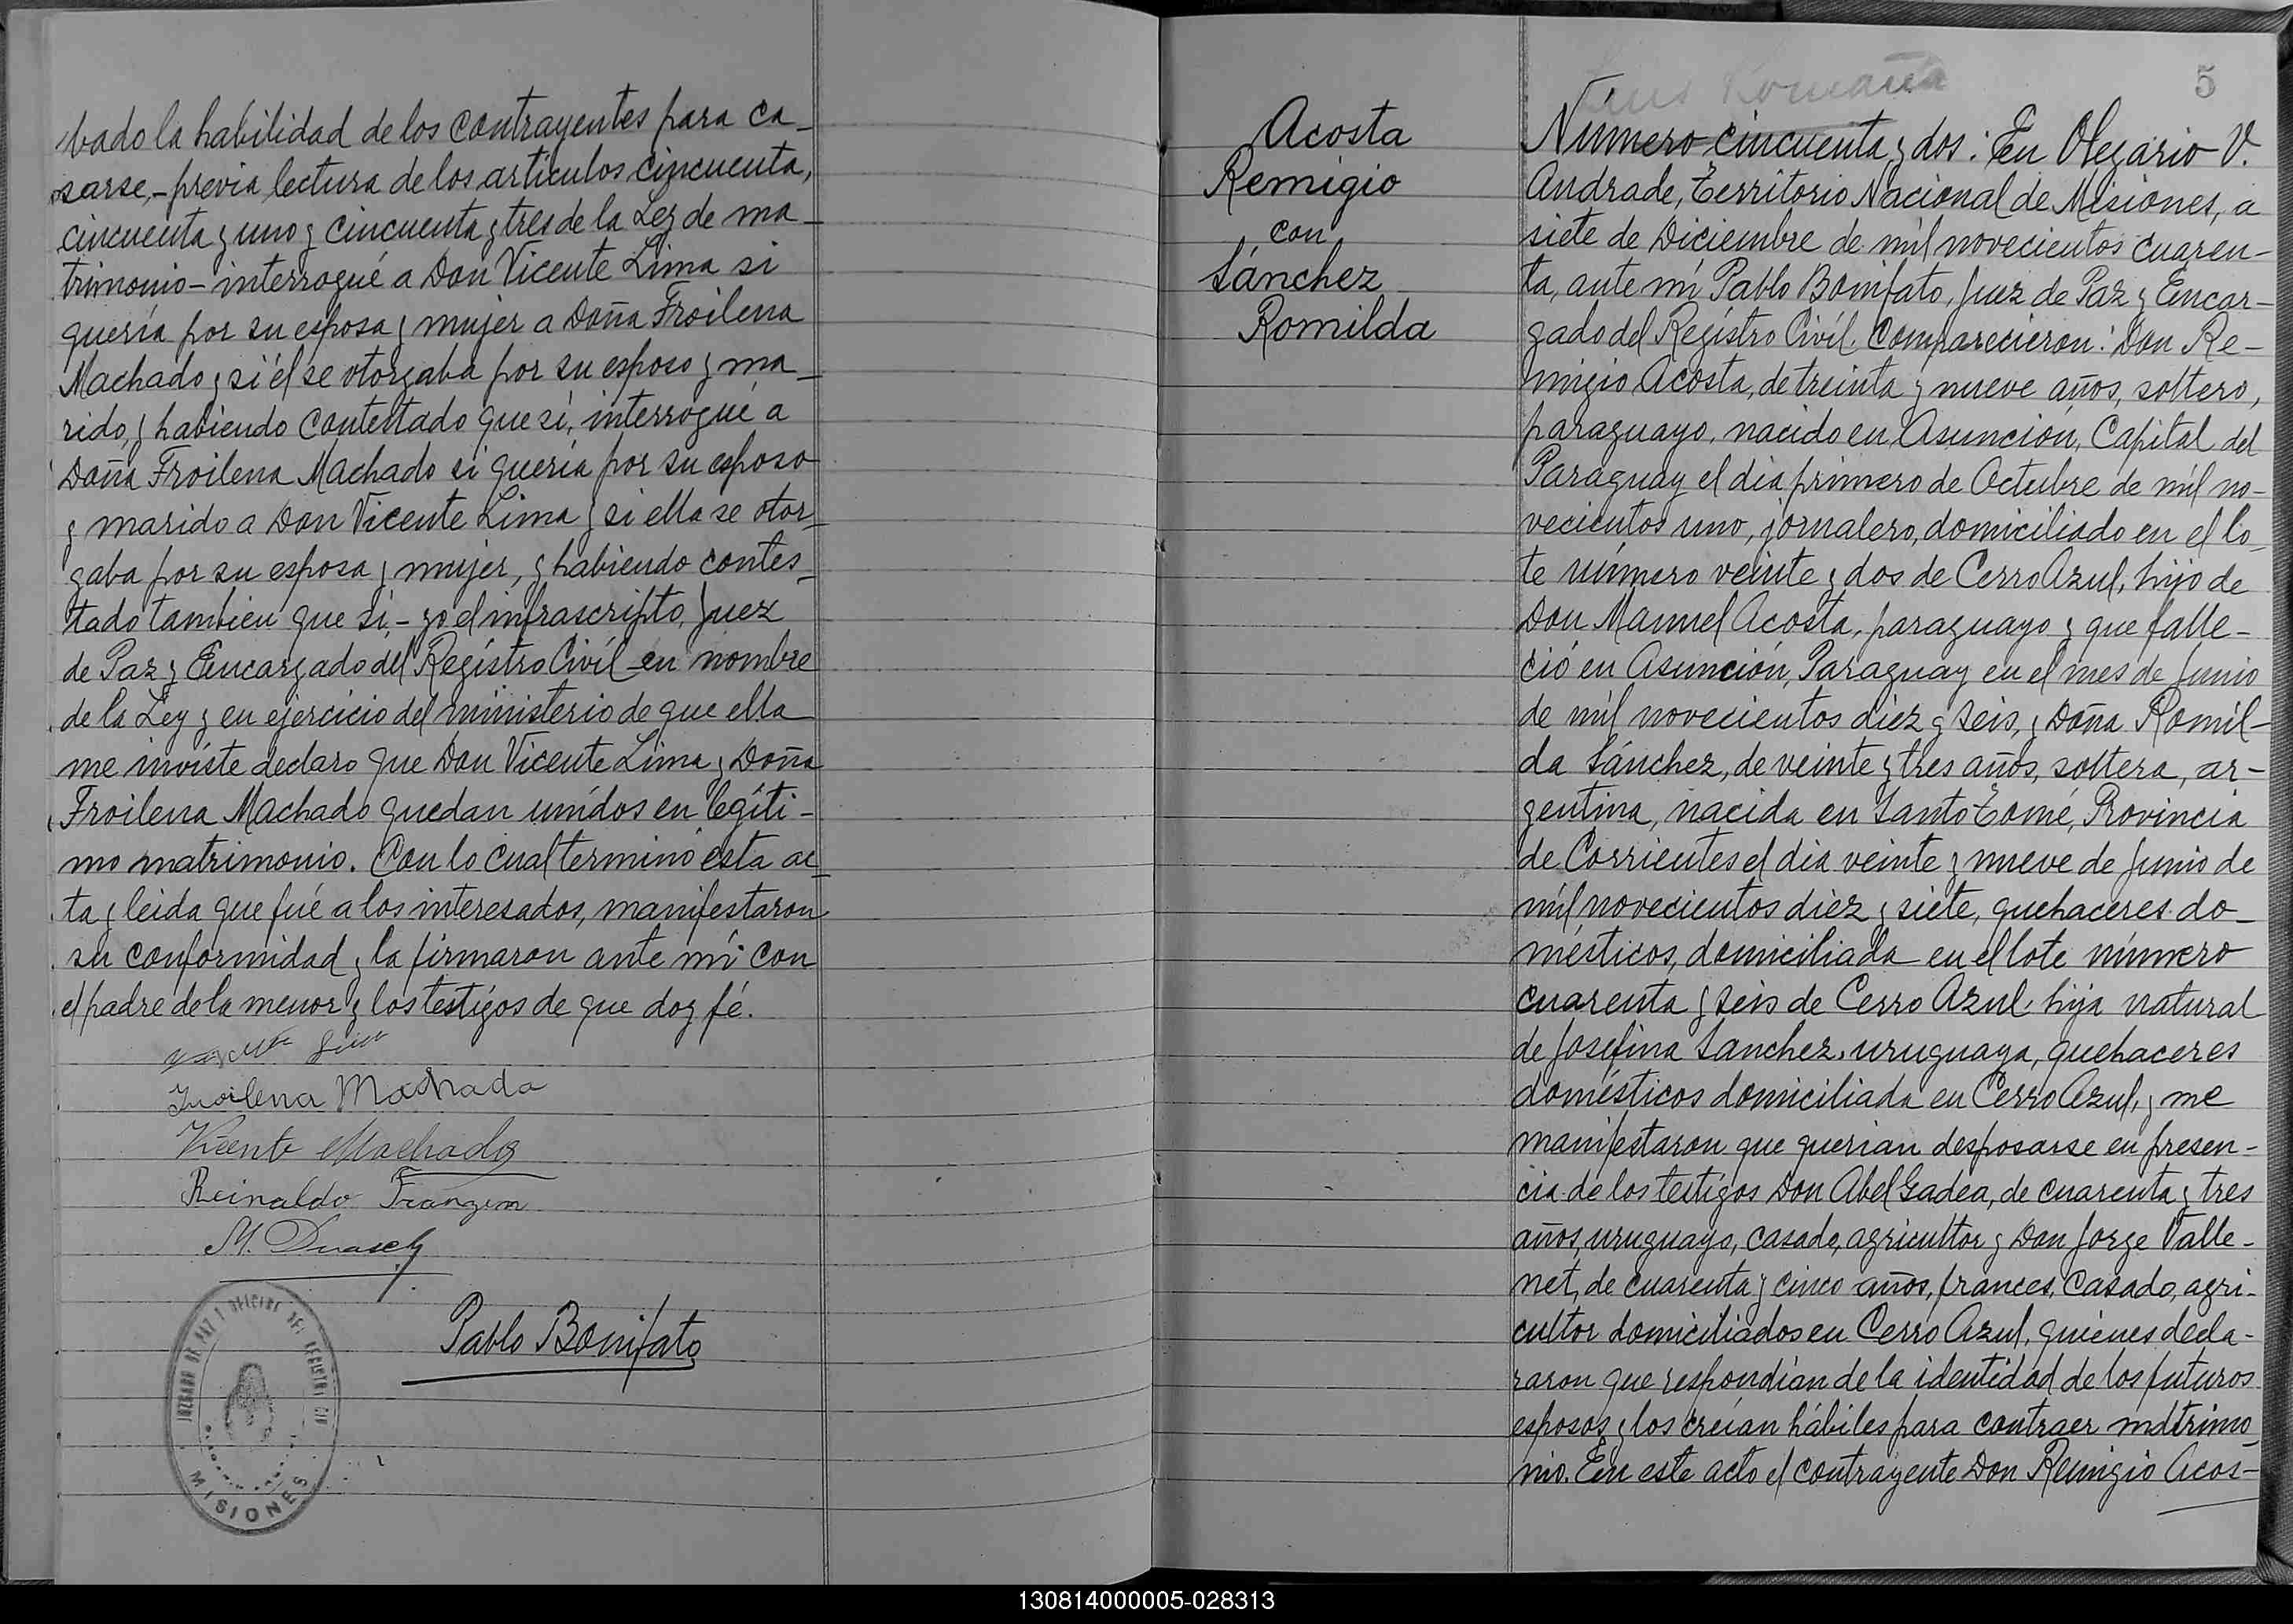 bado la habilidad de los contrayentes para ca-
sarse,- previa lectura de los artículos cincuenta,
cincuenta y uno y cincuenta y tres de la Ley de ma-
trimonio- interrogué a Don Vicente Lima si
quería por su esposa y mujer a Doña Froilena
Machado y si él se otorgaba por su esposo y ma-
rido, y habiendo contestado que sí, interrogué a
Doña Froilena Machado si quería por su esposo
y marido a Don Vicente Lima y si ella se otor-
gaba por su esposa y mujer, y habiendo contes-
tado tambien que si,- yo el infrascripto, Juez
de Paz y Encargado del Regístro Civíl en nombre
de la Ley y en ejercicio del ministerio de que ella
me inviste declaro que Don Vicente Lima y Doña
Froilena Machado quedan unídos en legíti-
mo matrimonio. Con lo cual terminó esta ac-
ta y leida que fué a los interesados, manifestaron
su conformidad y la firmaron ante mí con
el padre de la menor y los testigos de que doy fé.
Froilena Machado
Vicente Machado
Reinaldo
M.
Pablo Bonifato
JUZGADO DE PAZ Y OFICINA DEL REGISTRO CIV
MISIONES
Acosta
Remigio
con
Sánchez
Romilda
Romaña
5
Número cincuenta y dos: En Olegario V.
Andrade, Territorio Nacional de Misiones, a
siete de Diciembre de mil novecientos cuaren-
ta, ante mí Pablo Bonifato, Juez de Paz y Encar-
gado del Regístro Civíl. Comparecieron: Don Re-
migio Acosta, de treinta y nueve años, soltero,
paraguayo, nacido en Asunción, Capital del
Paraguay el día primero de Octubre de mil no-
vecientos uno, jornalero, domiciliado en el lo-
te número veinte y dos de Cerro Azul, hijo de
Don Manuel Acosta, paraguayo y que falle-
ció en Asunción, Paraguay en el mes de Junio
de mil novecientos diez y seis, y Doña Romil-
da Sánchez, de veinte y tres años, soltera, ar-
gentina, nacida en Santo Tomé, Provincia
de Corrientes el día veinte y nueve de Junio de
mil novecientos diez y siete, quehaceres do-
mésticos, domiciliada en el lote número
cuarenta y seis de Cerro Azul, hija natural
de Josefina Sanchez, uruguaya, quehaceres
domésticos domiciliada en Cerro Azul, y me
manifestaron que querian desposarse en presen-
cia de los testigos Don Abel Gadea, de cuarenta y tres
años, uruguayo, casado, agricultor y Don Jorge Valle-
net, de cuarenta y cinco años, frances, casado, agri-
cultor domiciliados en Cerro Azul, quienes decla-
raron que respondían de la identidad de los futuros
esposos y los creían hábiles para contraer matrimo-
nio. En este acto el contrayente Don Remigio Acos-
130814000005-028313